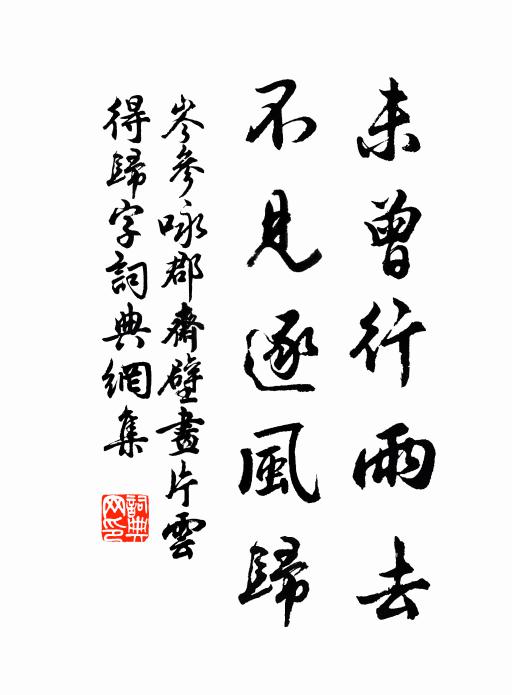 未曾行雨去
不見逐風歸
岑參咏郡齋壁畫片雲
得歸字詞典網集
詞典
网印